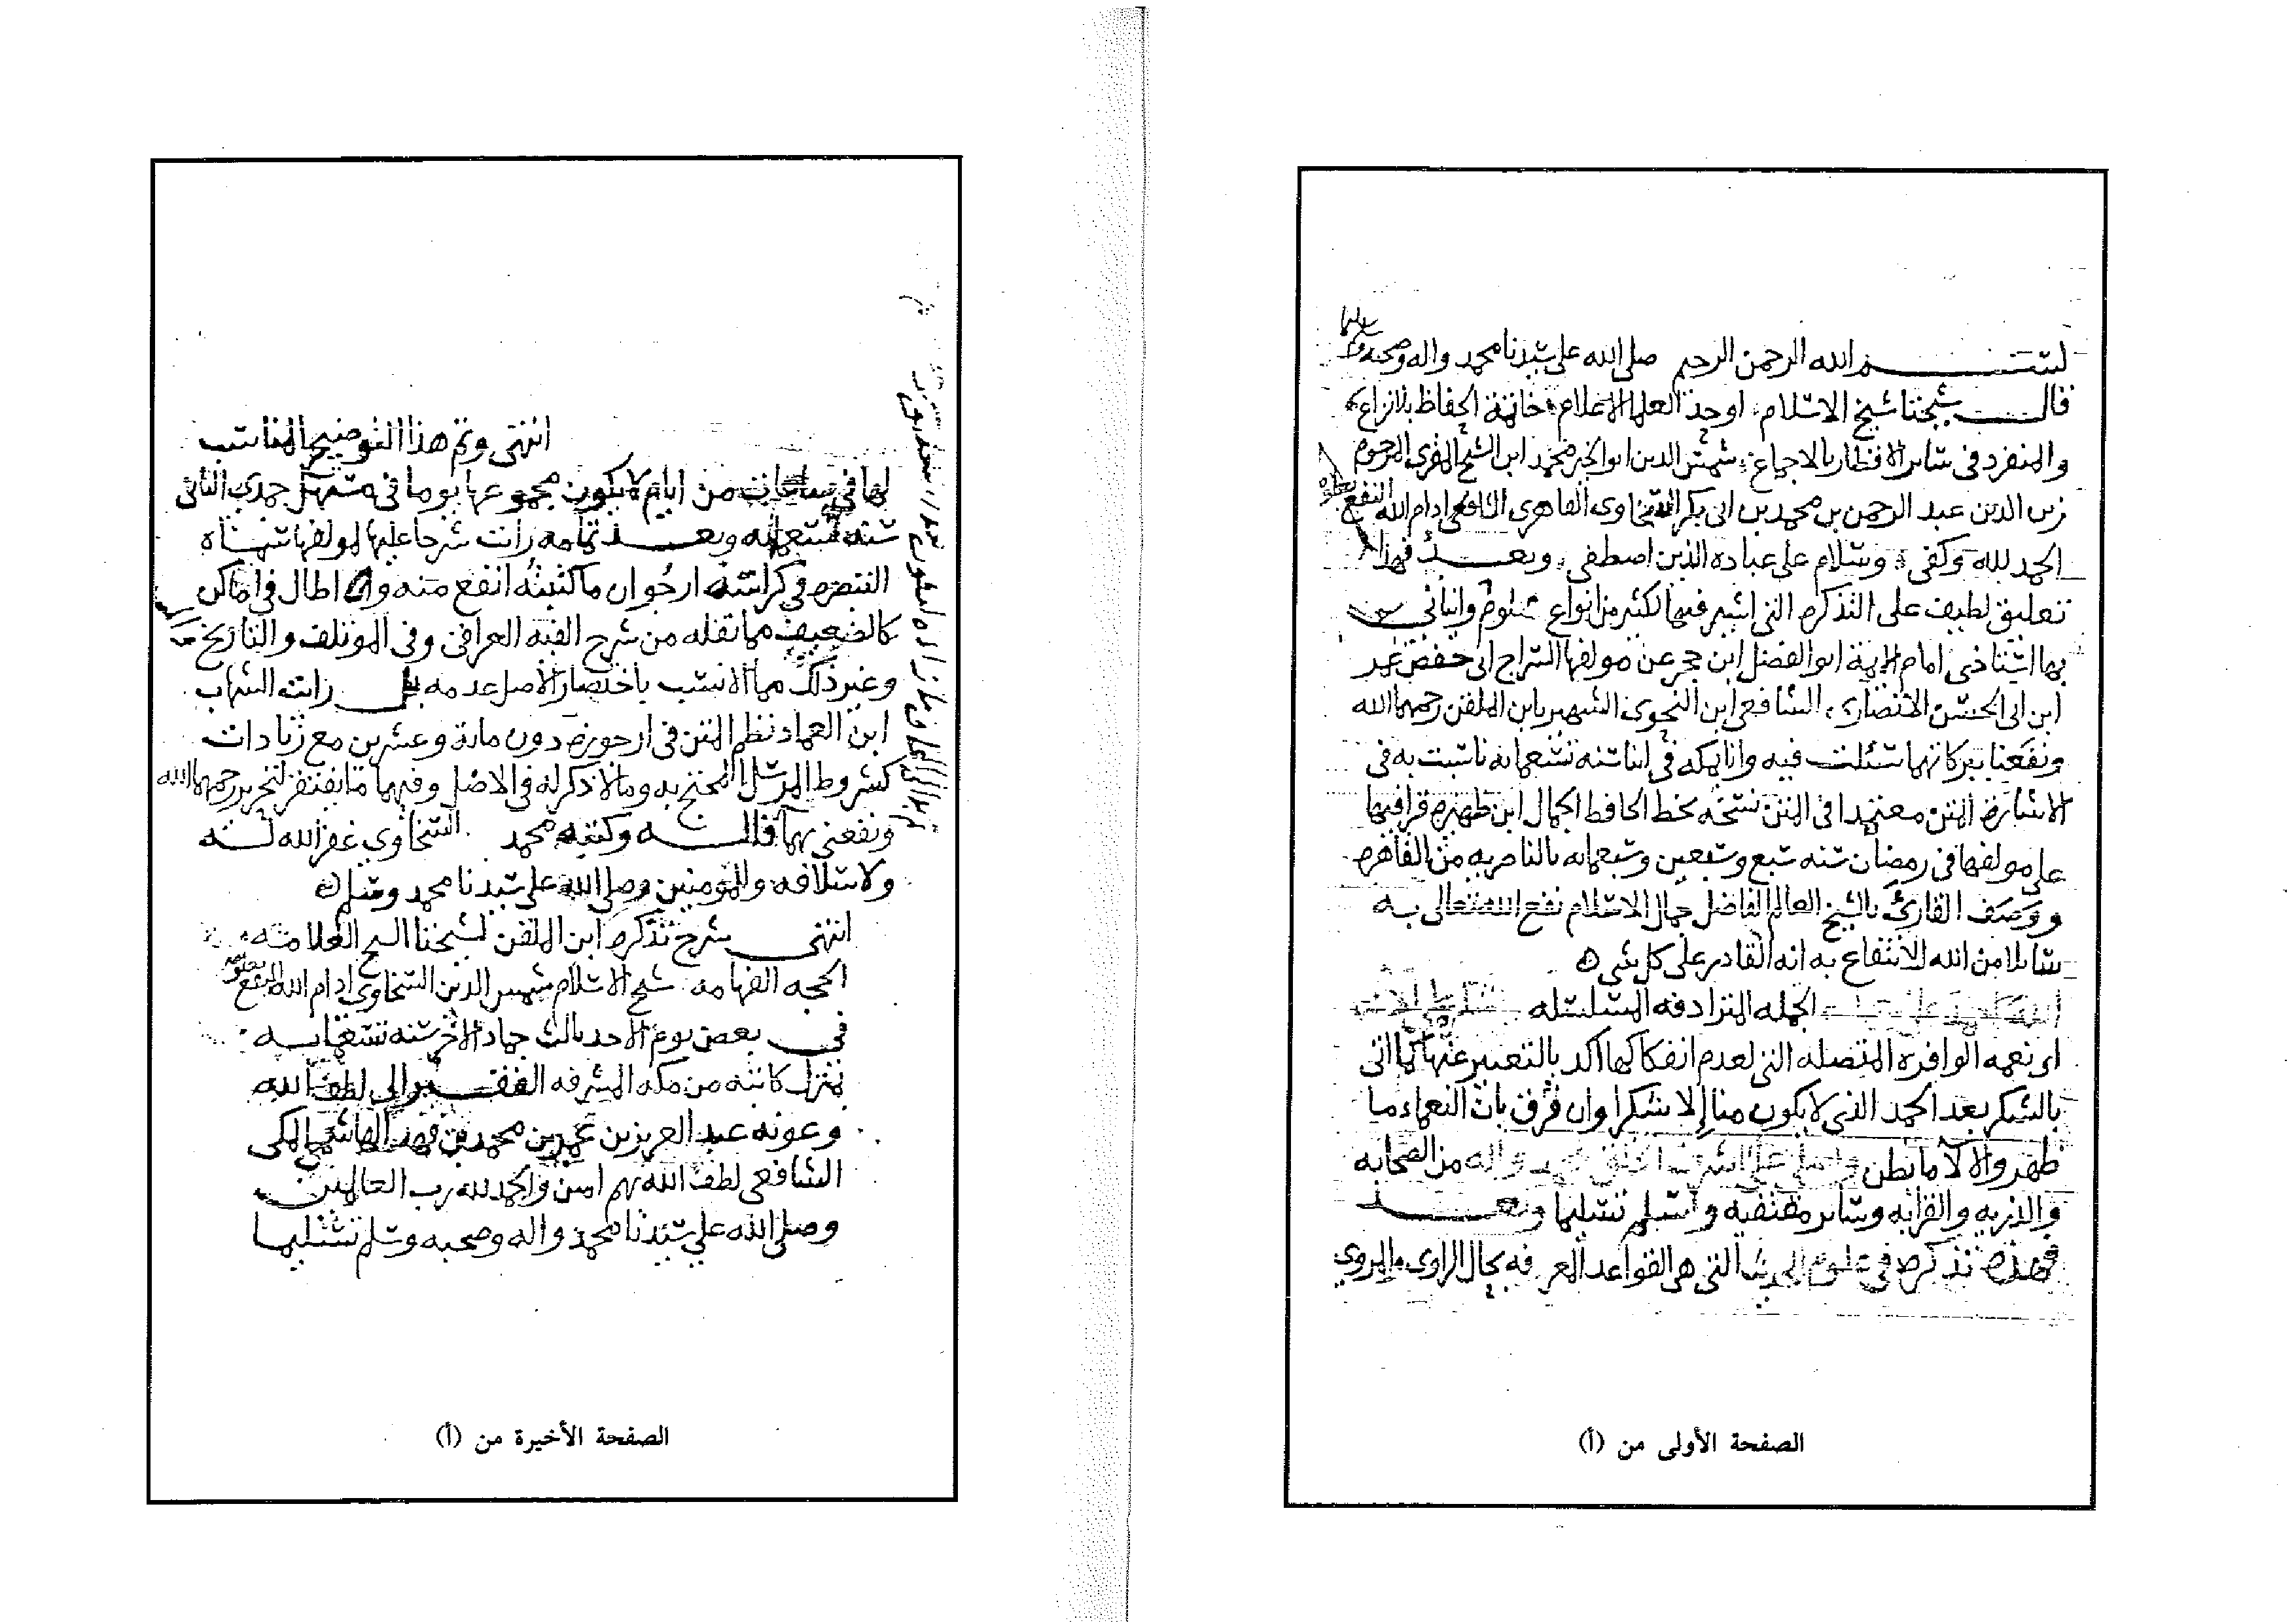 بسم الله الرحمن الرحيم صلى الله على سيدنا محمد واله وصحبه وسلم
قال شيخنا شيخ الاسلام اوحد العلما الاعلام خاتمة الحفاظ بلا نزاع
والمنفرد في ساير الاقطار بالاجماع شمس الدين ابو الخير محمد ابن الشيخ المقرى المرحوم
زين الدين عبد الرحمن بن محمد بن ابى بكر السخاوى القاهرى الشافعى ادام الله النفع
الحمد لله وكفى وسلام على عباده الذين اصطفى وبعد فهذا
تعليق لطيف على التذكره التى اشير فيها لكثير من انواع علوم وانبانى
بها استاذى امام الايمة ابو الفضل ابن حجر عن مولفها السراج ابى حفص عمر
ابن ابى الحسن الانصارى الشافعى ابن النحوى الشهير بابن الملقن رحمهما الله
ونفعنا ببركاتهما سئلت فيه وانا بمكه في اثنا سنه تسعمايه
المتن معتمدا فى المتن نسخه بخط الحافظ الجمال ابن ظهيره قرافيها
على مولفها فى رمضان سنه سبع وسبعين وسبعمايه بالناصريه من القاهره
ووصف القارئ بالشيخ العالم الفاضل جمال الاسلام نفع الله تعالى به
سايلا من الله الانتفاع به انه القادر على كل شى
الجمله المترادفه المتسلسله
اى نعمه الوافرة المتصله التى لعدم انفكاكها اكد بالتعبير عنها كما اتى
بالشكر بعد الحمد الذى لا يكون منا إلا شكرا وان فرق بان النعماء ما
ظهر والالآ ما بطن واله من الصحابه
والذريه والقرابه وساير مقتفيه واسلم تسليما وبعد
فهذه تذكره في علوم الحديث التى هى القواعد المعرفه بحال الراوى والمروي
الصفحة الأولى من (أ)
انتهى وتم هذا التوضيح المناسب
لها في ساعات من ايام لا يكون مجموعها يوما في مستهل جمدي الثانى
سنه تسعمايه وبعد تمامه رات شرحا عليها لمولفها سماه
التبصره في كراسته ارجو ان ما كتبته انفع منه وان اطال في اماكن
كالضعيف مما نقله من شرح الفيه العراقى وفى الموتلف والتاريخ
وغير ذلك مما الانسب باختصار الاصل عدمه بل رايت الشهاب
ابن العماد نظم المتن في ارجوزه دون ماية وعشرين مع زيادات
كشروط المرسل المحتج به وما لا ذكر له في الاصل وفيهما ما يفتقر لتحرير رحمهما الله
ونفعنى بهما قاله وكتبه محمد السخاوي غفر الله له
ولاسلافه والمومنين وصلى الله على سيدنا محمد وسلم
انتهى شرح تذكره ابن الملقن لشيخنا الشيخ العلامه
الحجه الفهامه شيخ الاسلام شمس الدين السخاوي ادام الله النفع بعلومه
في بعض يوم الاحد ثالث جماد الاخر سنه تسعمايه
بمنزل كاتبه من مكه المشرفه الفقير الى لطف الله
وعونه عبد العزيز بن عمر بن محمد بن فهد الهاشمي المكى
الشافعى لطف الله بهم امين والحمد لله رب العالمين
وصلى الله على سيدنا محمد واله وصحبه وسلم تسليما
الصفحة الأخيرة من (أ)